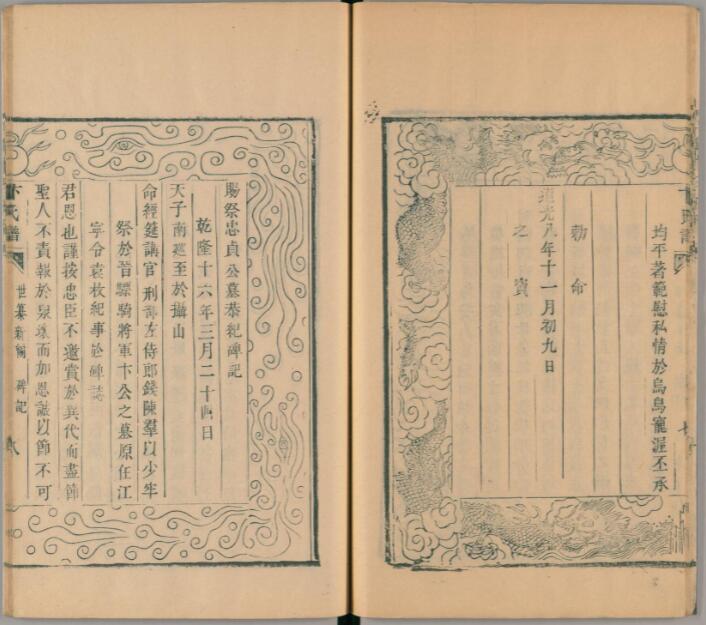 均平著範慰私情於烏鳥寵渥丕承
勅命
道光八年十一月初九日
之寶
賜祭忠貞公墓恭紀碑記
乾隆十六年三月二十四日
天子南廵至於攝山
命經筵講官刑部左侍郎錢陳羣以少牢
祭於晉驃騎將軍卞公之墓原任江
寧令袁枚紀事於碑誌
君恩也謹按忠臣不邀賞於異代而盡節
聖人不責報於泉壤而加恩誠以節不可
卞氏譜
世纂新編 碑記